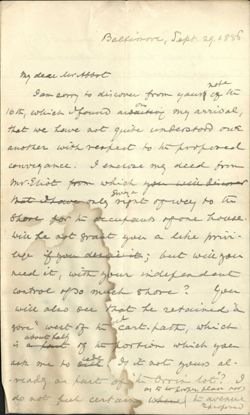 Baltimore, Sept. 29, 1886
My dear Mr Abbot
I am sorry to discover from your note of the
16th, which I found awaiting my arrival,
that we have not quite understood one
another with respect to the proposed
conveyance. I enclose my deed from
Mr Eliot from which you will discover
that I have only right of way to the
shore for the occupants of one house.
Will he not grant you a like privi-
lege if you desire it; but will you
need it, with your independent
control of so much shore? You
will also see that he retained a
"gore" west of the cart-path, which
is about half of the portion which you
ask me to cede. Is it not yours al-
ready as part of the Orrin lot? I
do not feel certain where the avenue